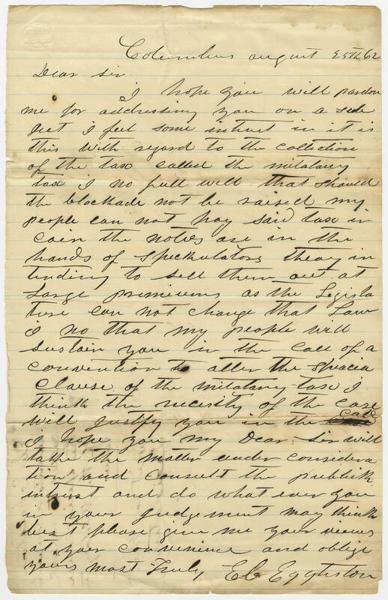 Columbus august 25th 62
Dear Sir
I hope you will pardon
me for addressing you on a sub
ject i feel some intrust in it is
this with regard to the collection
of the tax called the militarry
tax i no full well that should
the blockade not be raised my
people can not pay said tax in
coin the notes are in the
hands of speckulators thay in
tending to sell them out at
large primiums as the Legisla
ture can not change that Law
i no that my people will
sustain you in the call of a
convention to alter the
Clause of the militarry tax i
think the necisity of the case
will justify you in the call
I hope you my Dear Sir will
take the matter under considera
tion and consult the publick
intrust and do what ever you
in your judgement may think
best please give me your views
at your convenience and oblige
yours most Truly E C Eggleston